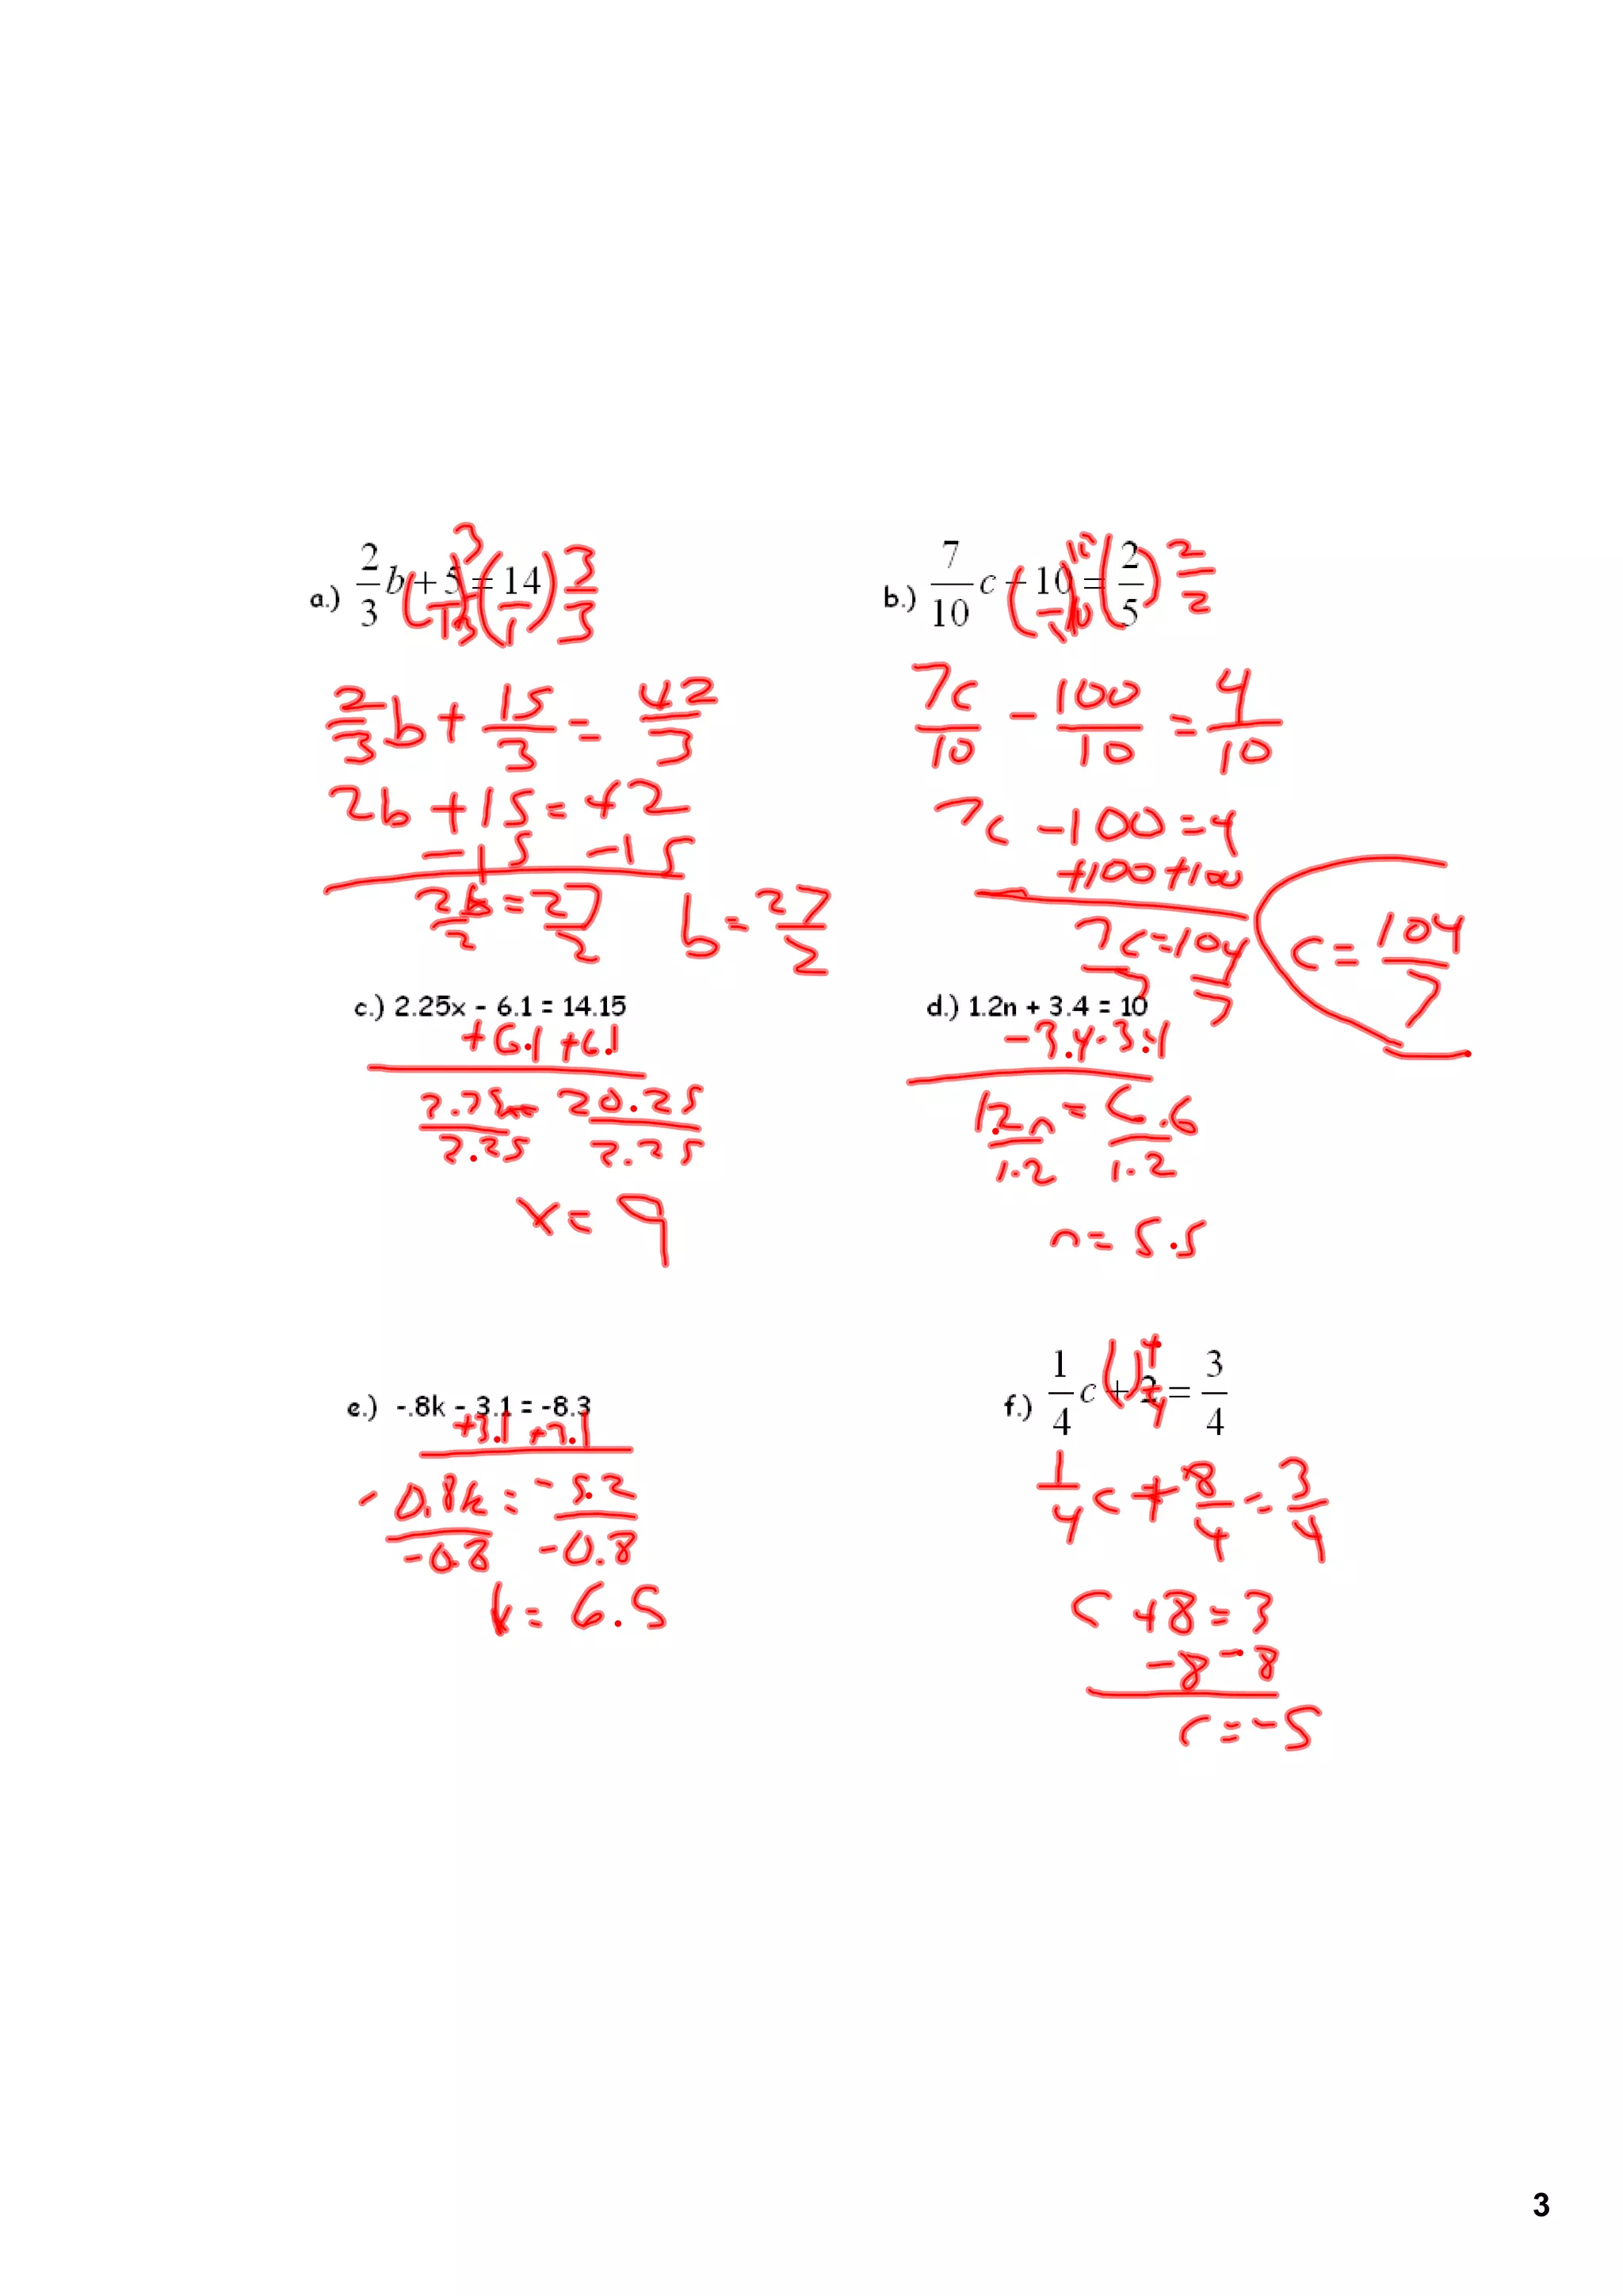 a.) 2/3 b + 5 = 14 (3/3) (1) 3/3
2/3 b + 15/3 = 42/3
2b + 15 = 42
-15 -15
2b/2 = 27/2 b = 27/2
b.) 7/10 c - 10 = 2/5 (10/10) 2/2
7c/10 - 100/10 = 4/10
7c - 100 = 4
+100 +100
7c/7 = 104/7 c = 104/7
c.) 2.25x - 6.1 = 14.15
+6.1 +6.1
2.25x/2.25 = 20.25/2.25
x = 9
d.) 1.2n + 3.4 = 10
-3.4 -3.4
1.2n/1.2 = 6.6/1.2
n = 5.5
e.) -.8k - 3.1 = -8.3
+3.1 +3.1
-0.8k/-0.8 = -5.2/-0.8
k = 6.5
f.) 1/4 c + 2 = 3/4 ( ) 4/4
1/4 c + 8/4 = 3/4
c + 8 = 3
-8 -8
c = -5
3